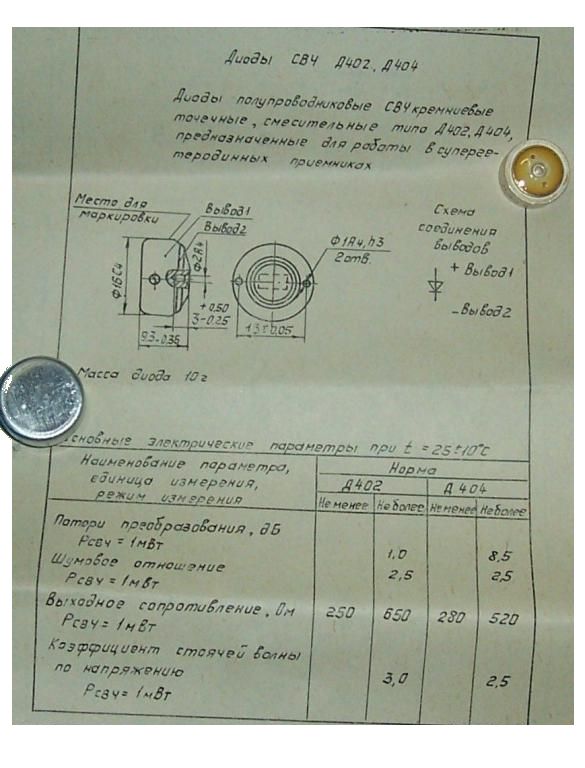 Диоды СВЧ Д402, Д404
Диоды полупроводниковые СВЧ кремниевые
точечные, смесительные типа Д402, Д404,
предназначенные для работы в суперге-
теродинных приемниках
Место для
маркировки
Вывод1
Вывод2
Ф16С4
Ф2А4
+0.50
3-0.25
9.3-0.36
Ф1А4,h3
2отв.
13±0.05
Схема
соединения
выводов
+ Вывод1
-Вывод2
Масса диода 10г
Основные электрические параметры при t = 25±10°С
Наименование параметра,
единица измерения,
режим измерения
Норма
Д402 Д404
Не менее Не более Не менее Не более
Потери преобразования, дБ
Рсвч = 1мВт 1,0 8,5
Шумовое отношение
Рсвч = 1мВт 2,5 2,5
Выходное сопротивление, Ом 250 650 280 520
Рсвч = 1мВт
Коэффициент стоячей волны
по напряжению 3,0 2,5
Рсвч = 1мВт